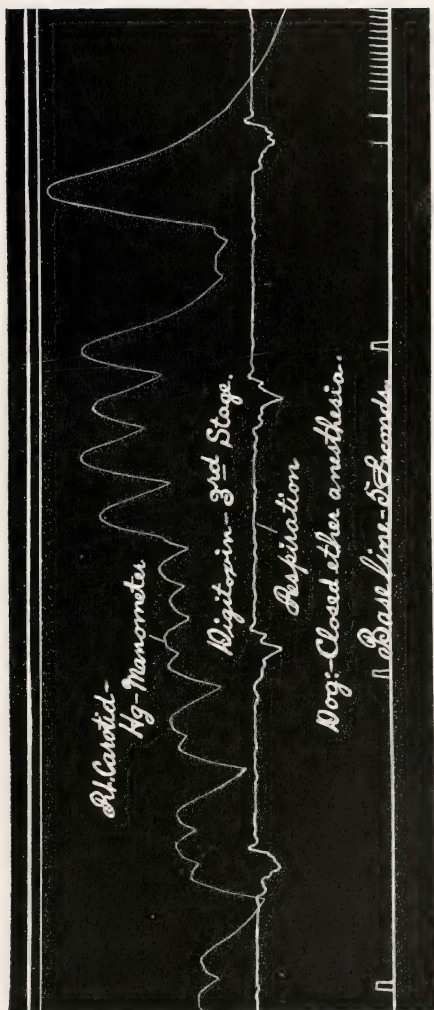 Rt. Carotid-
Hg-Manometer
Digitoxin-3rd Stage.
Respiration
Dog:-Closed ether anesthesia.
Base line-5 Seconds